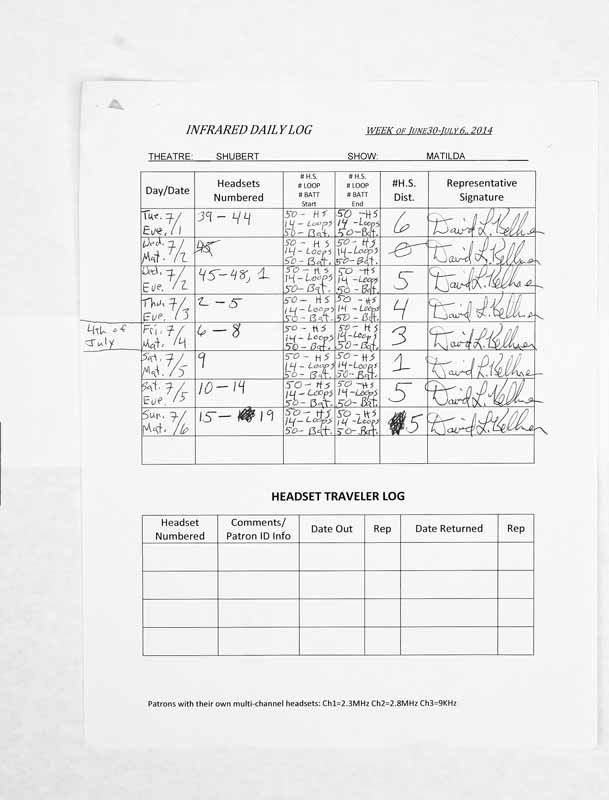 INFRARED DAILY LOG WEEK OF JUNE30-JULY 6, 2014
THEATRE: SHUBERT SHOW: MATILDA
Day/Date Headsets Numbered # H.S. # LOOP # BATT Start # H.S. # LOOP # BATT End #H.S. Dist. Representative Signature
Tue. 7/1 Eve. 39 - 44 50 - HS 14 - Loops 50 - Bat. 50 - HS 14 - Loops 50 - Bat. 6 David L. Kellner
Wed. 7/2 Mat. 50 - HS 14 - Loops 50 - Bat. 50 - HS 14 - Loops 50 - Bat. 0 David L. Kellner
Wed. 7/2 Eve. 45-48, 1 50 - HS 14 - Loops 50 - Bat. 50 - HS 14 - Loops 50 - Bat. 5 David L. Kellner
Thu. 7/3 Eve. 2 - 5 50 - HS 14 - Loops 50 - Bat. 50 - HS 14 - Loops 50 - Bat. 4 David L. Kellner
4th of July Fri. 7/4 Mat. 6 - 8 50 - HS 14 - Loops 50 - Bat. 50 - HS 14 - Loops 50 - Bat. 3 David L. Kellner
Sat. 7/5 Mat. 9 50 - HS 14 - Loops 50 - Bat. 50 - HS 14 - Loops 50 - Bat. 1 David L. Kellner
Sat. 7/5 Eve. 10 - 14 50 - HS 14 - Loops 50 - Bat. 50 - HS 14 - Loops 50 - Bat. 5 David L. Kellner
Sun. 7/6 Mat. 15 - 19 50 - HS 14 - Loops 50 - Bat. 50 - HS 14 - Loops 50 - Bat. 5 David L. Kellner
HEADSET TRAVELER LOG
Headset Numbered Comments/ Patron ID Info Date Out Rep Date Returned Rep
Patrons with their own multi-channel headsets: Ch1=2.3MHz Ch2=2.8MHz Ch3=9KHz